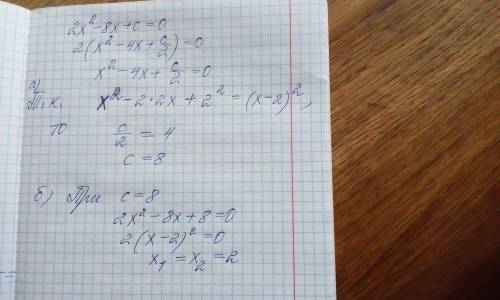 2x² - 8x + c = 0
2(x² - 4x + c/2) = 0
x² - 4x + c/2 = 0
а)
Т.к. x² - 2·2x + 2² = (x-2)²,
то c/2 = 4
c = 8
б) При c = 8
2x² - 8x + 8 = 0
2(x-2)² = 0
x₁ = x₂ = 2